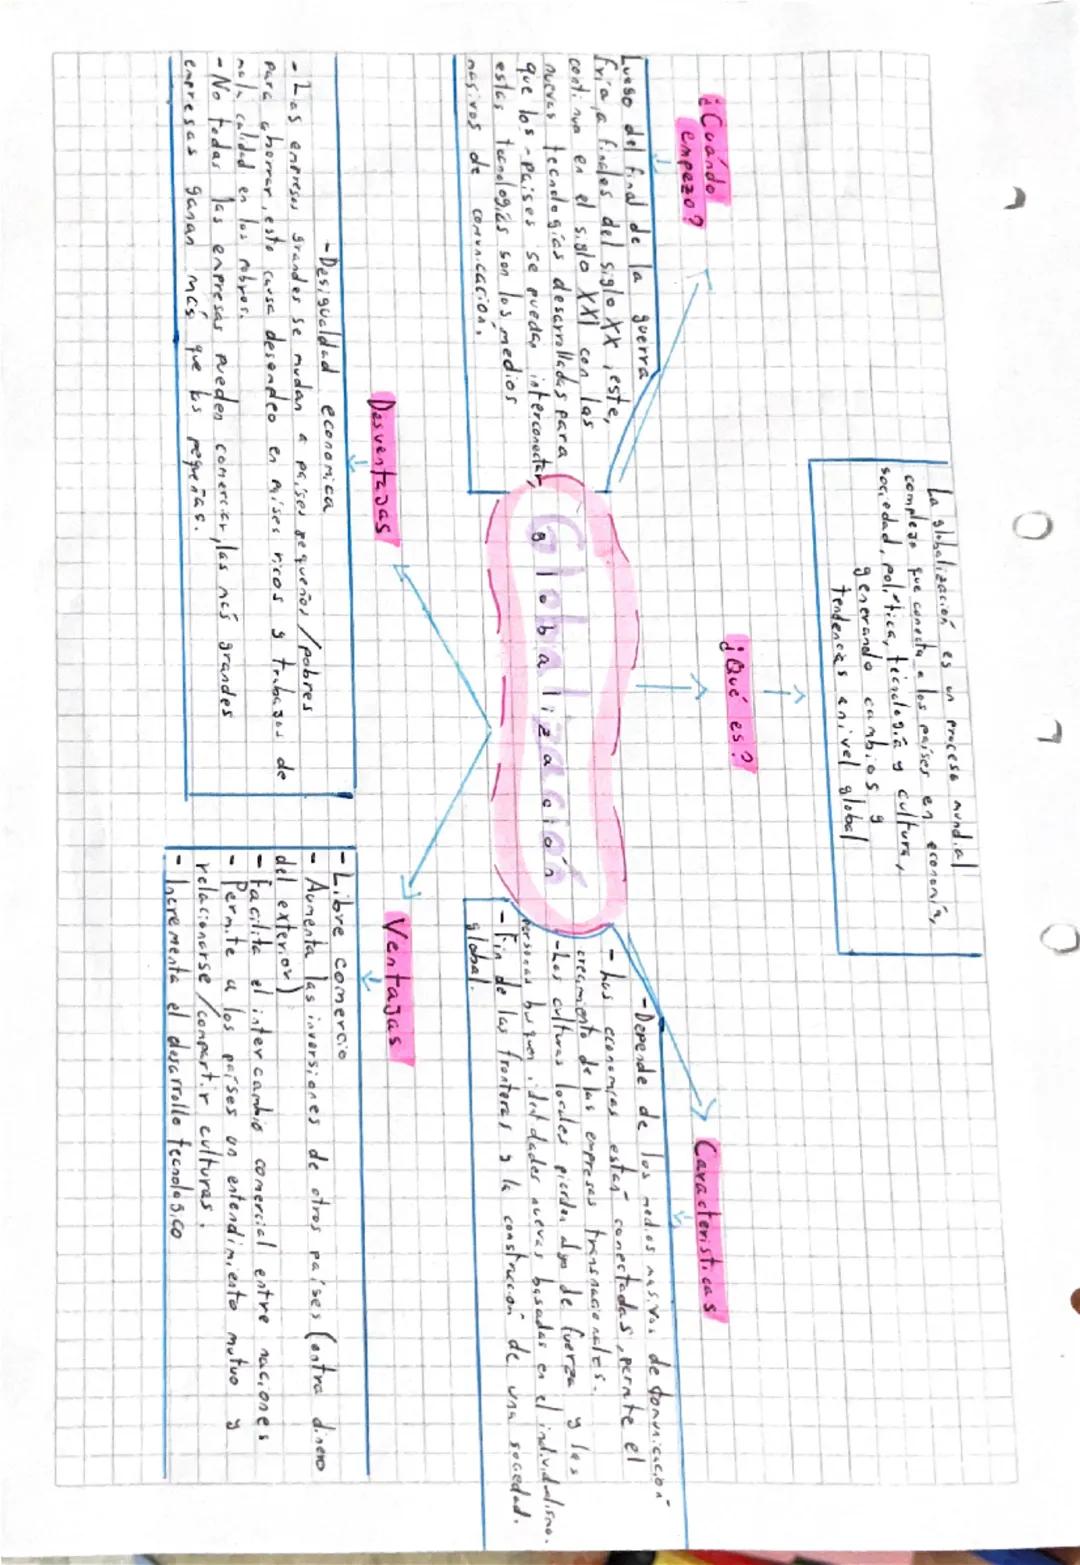 La globalización es un proceso mundial
complejo que conecta a los países en economía,
sociedad, política, tecnología y cultura,
generando cambios y
tendencias a nivel global
¿Qué es?
¿Cuándo
empezo?
Luego del final de la guerra
fría, a finales del siglo XX, este,
continua en el siglo XXI con las
nuevas tecnologías desarrolladas para
que los -países se puedan interconectar,
estas tecnologías son los medios
masivos de comunicacion.
Globalización
Características
-Depende de los medios masivos de comunicacion
- Las economías están conectadas, permite el
crecimiento de las empresas transnacionales.
-Las culturas locales pierden algo de fuerza y las
personas busquen identidades nuevas basadas en el individualismo.
-Fin de las fronteras y la construcción de una sociedad
global.
Desventajas
-Desigualdad economica
- Las empresas grandes se mudan a países pequeños/pobres
para ahorrar, esto causa desempleo en países ricos y trabajos de
mala calidad en los pobres.
- No todas las empresas pueden comerciar, las más grandes
empresas ganan más que las pequeñas.
Ventajas
- Libre comercio
- Aumenta las inversiones de otros países (entra dinero
del exterior)
- Facilita el intercambio comercial entre naciones
- Permite a los países un entendimiento mutuo y
relacionarse/compartir culturas.
- Incrementa el desarrollo tecnologico